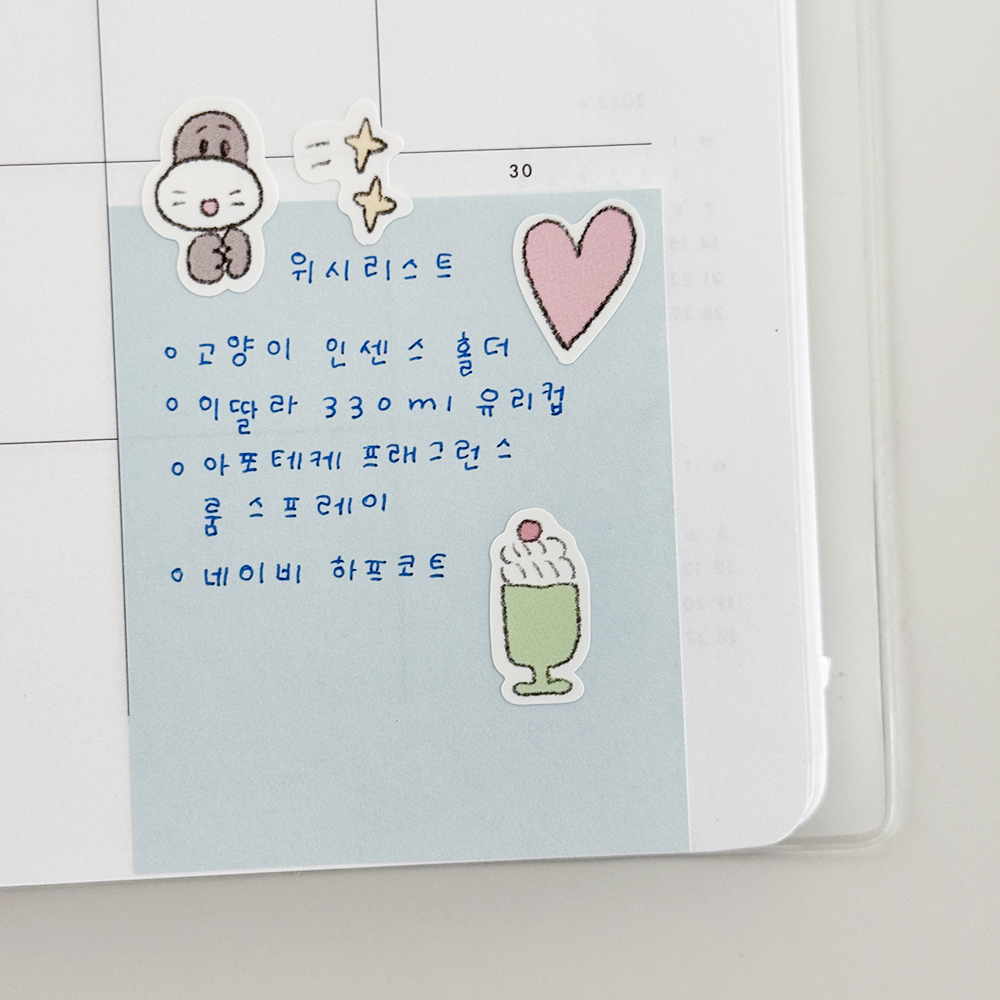 30
위시리스트
o 고양이 인센스 홀더
o 이딸라 330ml 유리컵
o 아포테케 프래그런스
룸 스프레이
o 네이비 하프코트